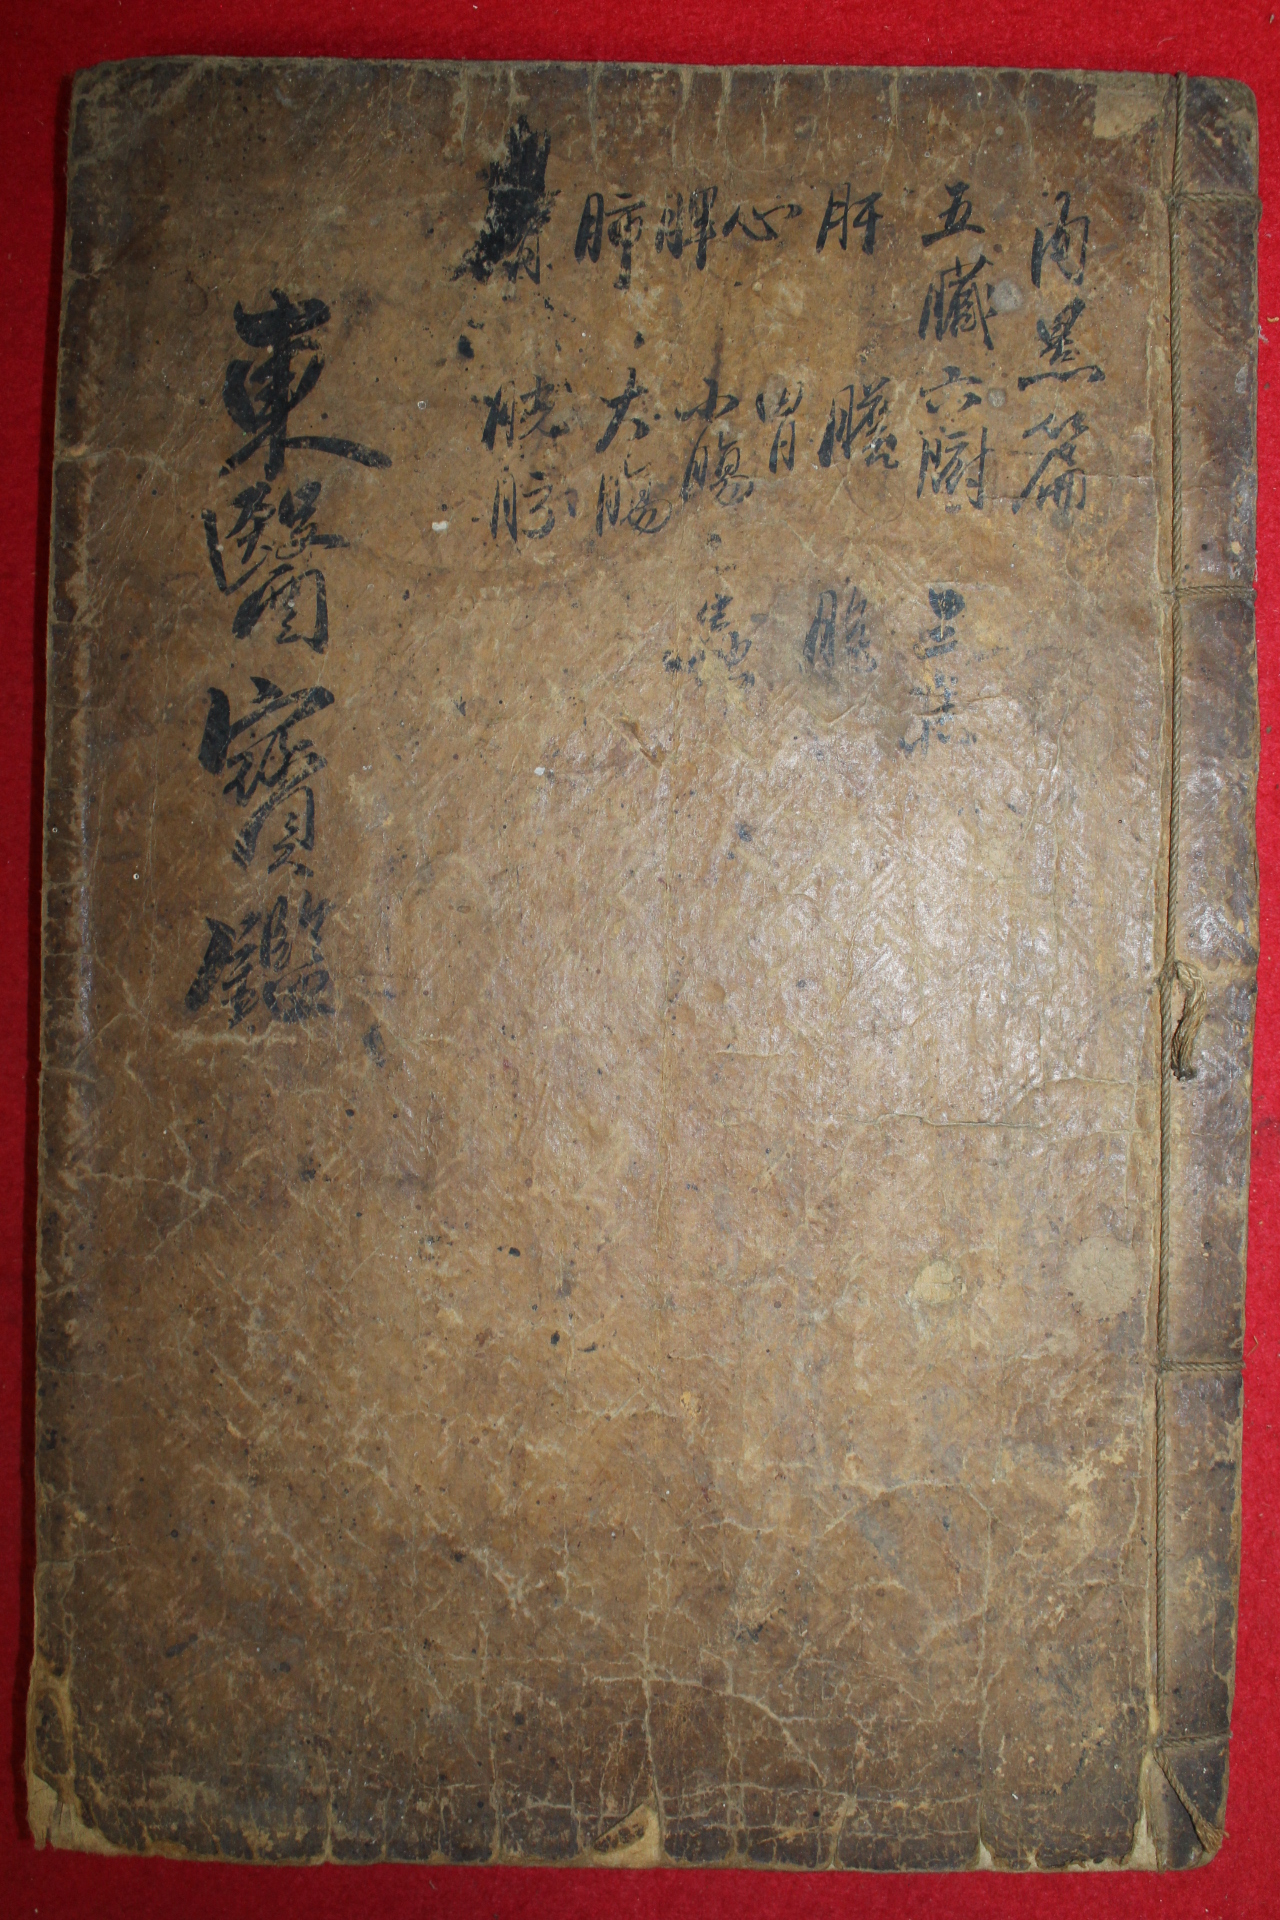 内景篇
五臟六腑 三焦
肝 膽 胞
心 胃
脾 小腸 蟲
肺 大腸
腎 胱膀
東醫寶鑑